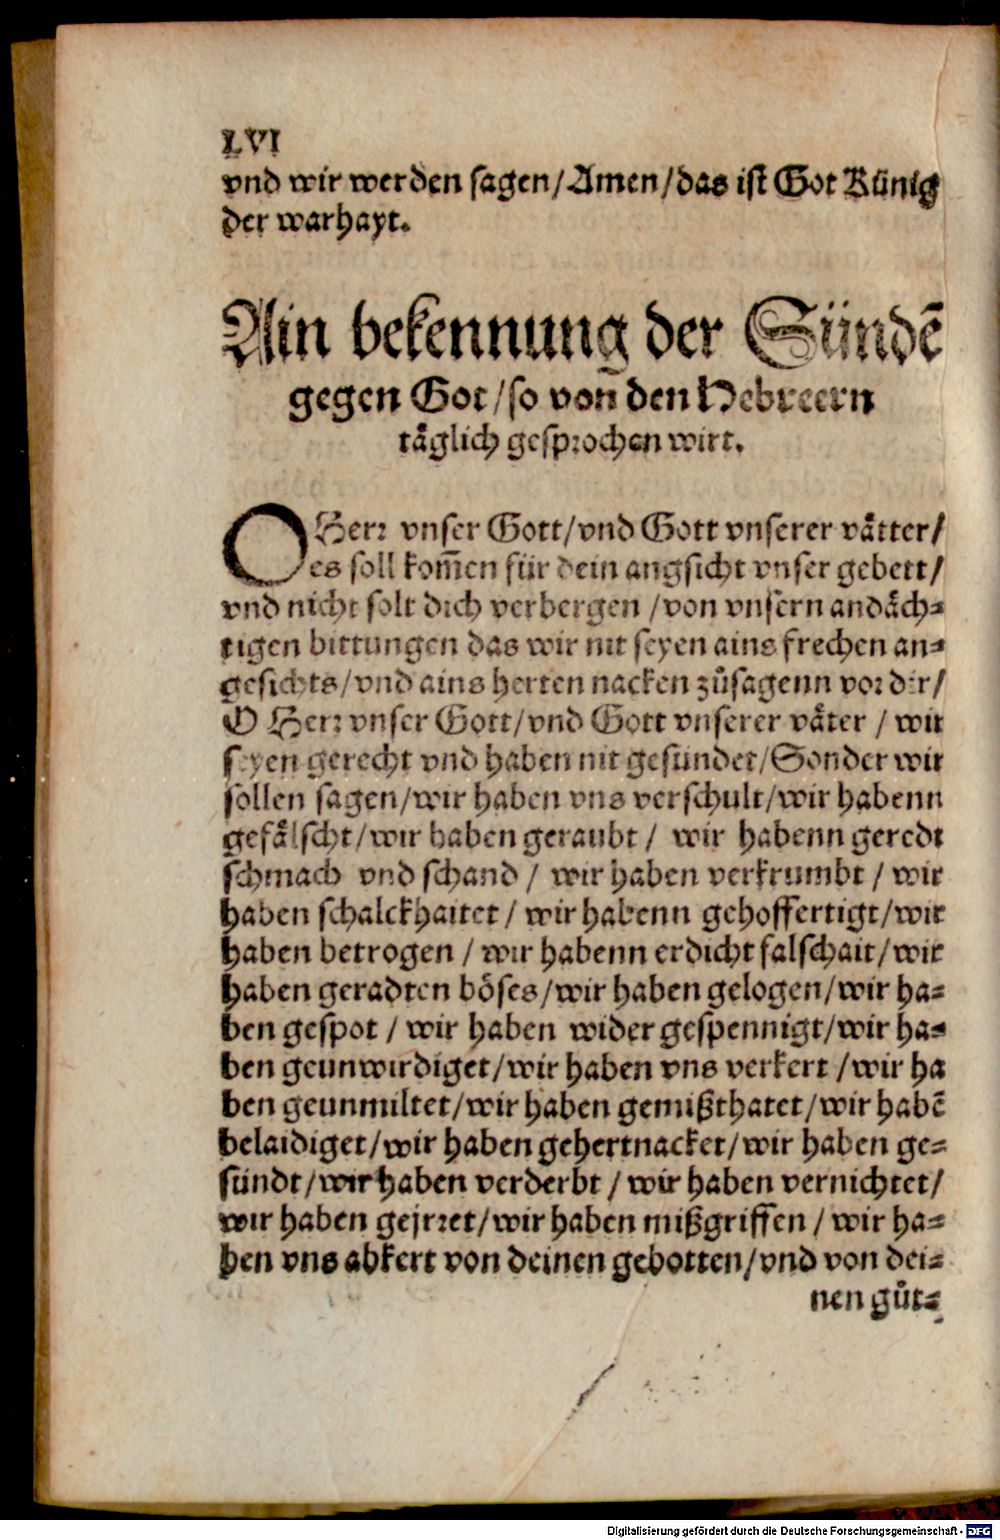 LVI
vnd wir werden sagen/Amen/das ist Got Künig
der warhayt.
Ain bekennung der Sündẽ
gegen Got/so von den Hebreern
tåglich gesprochen wirt.
O Herr vnser Gott/vnd Gott vnserer våtter/
es soll kom̃en für dein angsicht vnser gebett/
vnd nicht solt dich verbergen /von vnsern andåch-
tigen bittungen das wir nit seyen ains frechen an-
gesichts/vnd ains herten nacken zůsagenn vor dir/
O Herr vnser Gott/vnd Gott vnserer våter / wir
seyen gerecht vnd haben nit gesündet/Sonder wir
sollen sagen/wir haben vns verschult/wir habenn
gefålscht/wir haben geraubt / wir habenn geredt
schmach vnd schand / wir haben verkrumbt / wir
haben schalckhaitet / wir habenn gehoffertigt/wir
haben betrogen / wir habenn erdicht falschait/wir
haben geradten böses/wir haben gelogen/wir ha-
ben gespot / wir haben widergespennigt/wir ha-
ben geunwirdiget/wir haben vns verkert /wir ha
ben geunmiltet/wir haben gemißthatet/wir habẽ
belaidiget/wir haben gehertnacket/wir haben ge-
sündt/wir haben verderbt / wir haben vernichtet/
wir haben gejrret/wir haben mißgriffen / wir ha-
ben vns abkert von deinen gebotten/vnd von dei-
nen gůt-
Digitalisierung gefördert durch die Deutsche Forschungsgemeinschaft - DFG